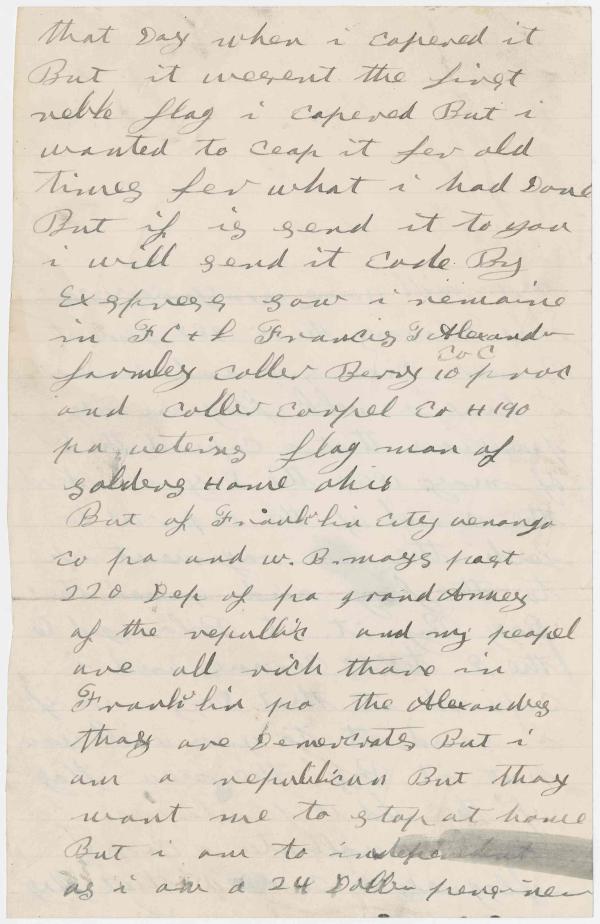 that Day when i capered it
But it weesent the first
reble flag i capered But i
wanted to ceap it fer old
times fer what i had Done
But if is send it to you
i will send it Code By
Express sow i remaine
in F C & L Francis T Alexander
formley coller Berry 10 Co C proc
and coller corpel Co H 190
pa veteins flag man of
solders Home ohio
But of Franklin City venango
co pa and w. B. mays post
220 Dep of pa grand Armey
of the republic and my peopel
are all rich thare in
Franklin pa the Alexandres
thay are Democrates But i
am a republican But thay
want me to stop at home
But i am to independent
as i am a 24 Doller